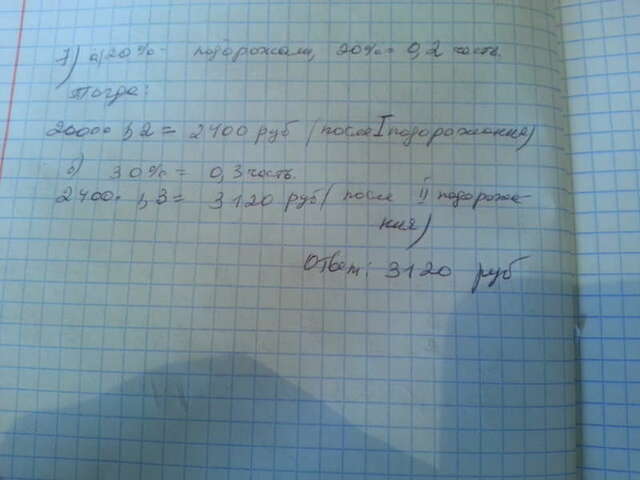 7) а) 20% - подорожали, 20% = 0,2 часть.
Тогда:
2000 · 1,2 = 2400 руб (после I подорожания)
б) 30% = 0,3 часть.
2400 · 1,3 = 3120 руб (после II подорожа-
ния)
Ответ: 3120 руб